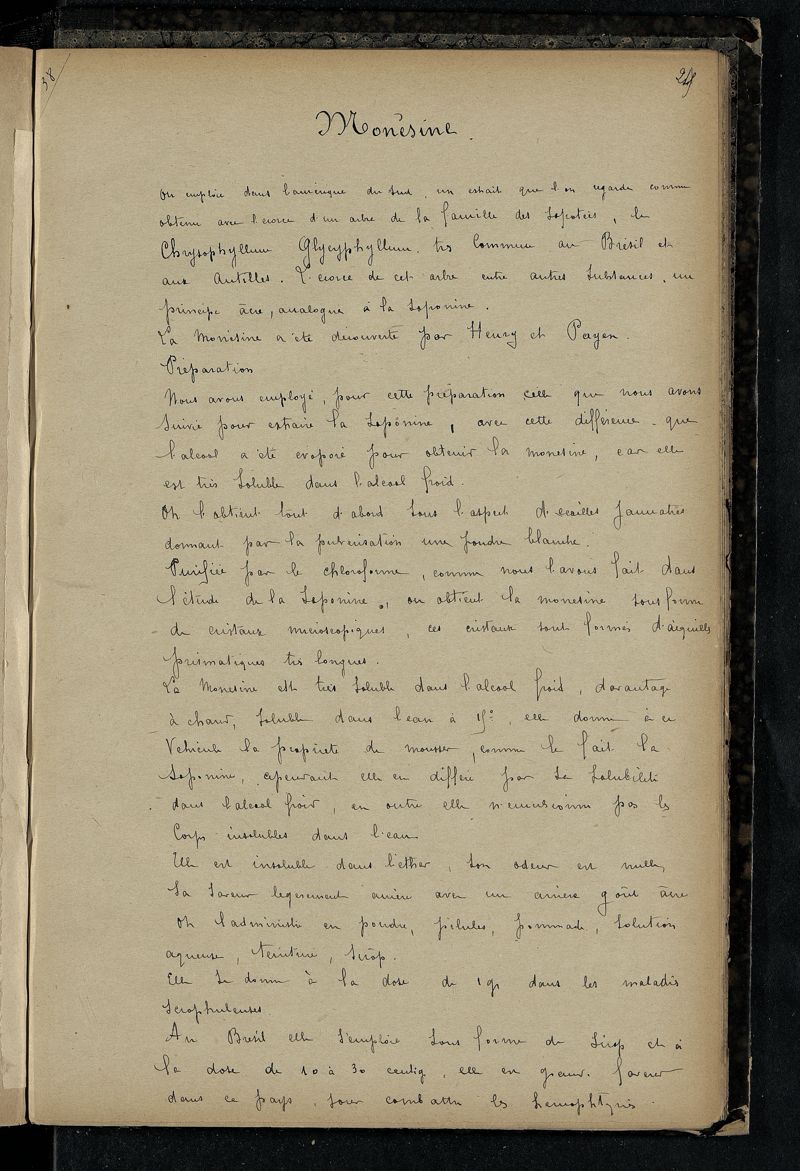 38
Monésine
On emploie dans l'amérique du Sud, un extrait que l'on regarde comme
obtenu avec l'écorce d'un arbre de la famille des Sapotées, le
Chrysophyllum Glycyphyllum, très Commun au Brésil et
aux Antilles. L'écorce de cet arbre entre autres Substances, un
principe âcre, analogue à la Saponine.
La Monésine a été découverte par Henry et Payen.
Préparation
Nous avons employé, pour cette préparation celle que nous avons
Suivie pour extraire la Saponine, avec cette différence que
l'alcool a été évaporé pour obtenir la monésine, car elle
est très Soluble dans l'alcool froid.
On l'obtient tout d'abord Sous l'aspect d'écailles Jaunatres
donnant par la pulvérisation une poudre blanche.
Purifiée par le chloroforme, comme nous l'avons fait dans
l'étude de la Saponine, on obtient la monésine Sous forme
de cristaux microscopiques, ces cristaux sont formés d'aiguilles
prismatiques très longues.
La Monésine est très Soluble dans l'alcool froid, davantage
à chaud, Soluble dans l'eau à 15°, elle donne à ce
Véhicule la propriété de mousser, comme le fait la
Saponine, cependant elle en diffère par Sa Solubilité
dans l'alcool froid, en outre elle n'émusionne pas les
Corps insolubles dans l'eau
Elle est insoluble dans l'ether, Son odeur est nulle,
Sa Saveur legerement amère avec un arrière goût âcre
On l'administre en poudre, pilules, pommade, Solution
aqueuse, teinture, Sirop.
Elle Se donne à la dose de 1 gr dans les maladies
Scrophuleuses.
Au Brésil elle S'emploie Sous forme de Sirop et à
la dose de 10 à 30 centig, elle en grande faveur
dans ce pays, pour combattre les hémophtysies.